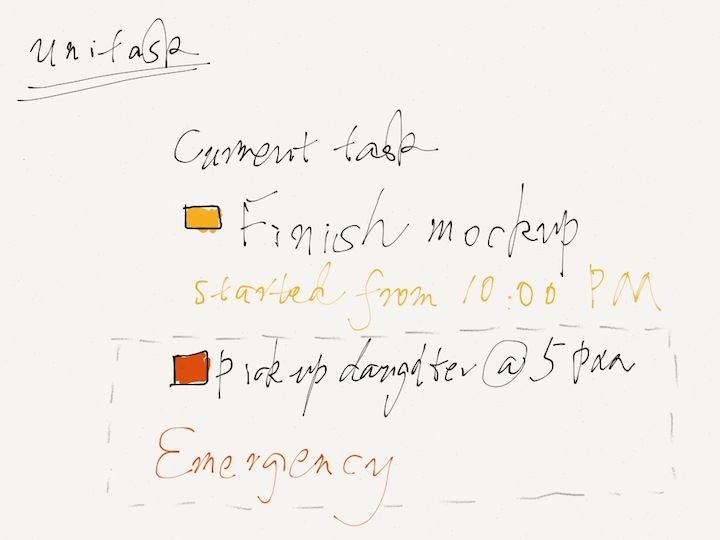 Unitask
Current task
Finish mockup
started from 10:00 PM
pick up daughter @ 5 pm
Emergency